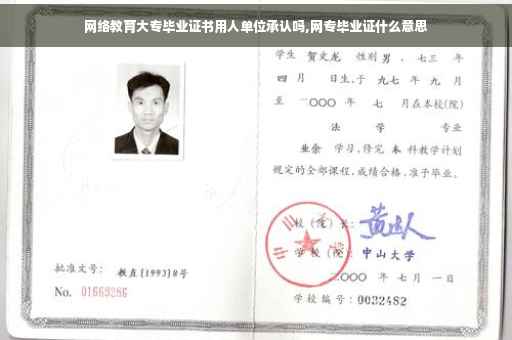 网络教育大专毕业证书用人单位承认吗,网专毕业证什么意思
学生 贺文龙 性别 男 、七三 年
四 月 日生,于 九七 年 九 月
至 二〇〇〇 年 七 月在本校(院)
法 学 专业
业余 学习,修完 本 科教学计划
规定的全部课程,成绩合格,准予毕业。
校(院)长:
学校(院): 中山大学
二〇〇〇 年 七 月 一 日
学校编号: 0032482
批准文号: 教直[1993]8号
No. 01669286